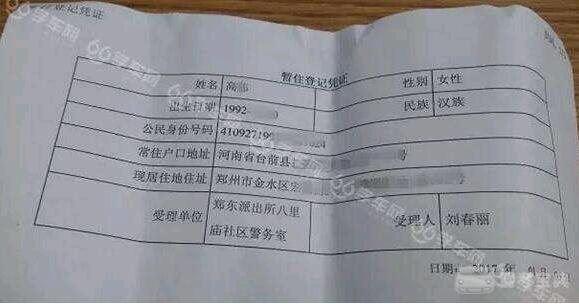 登记凭证
暂住登记凭证
姓名 高 性别 女性
出生日期 1992 民族 汉族
公民身份号码 410927199
常住户口地址 河南省台前县 号
现居住地住址 郑州市金水区 号
受理单位 郑东派出所八里 受理人 刘春丽
庙社区警务室
日期: 2017 年 月
66学车网
66学车网
考宝典